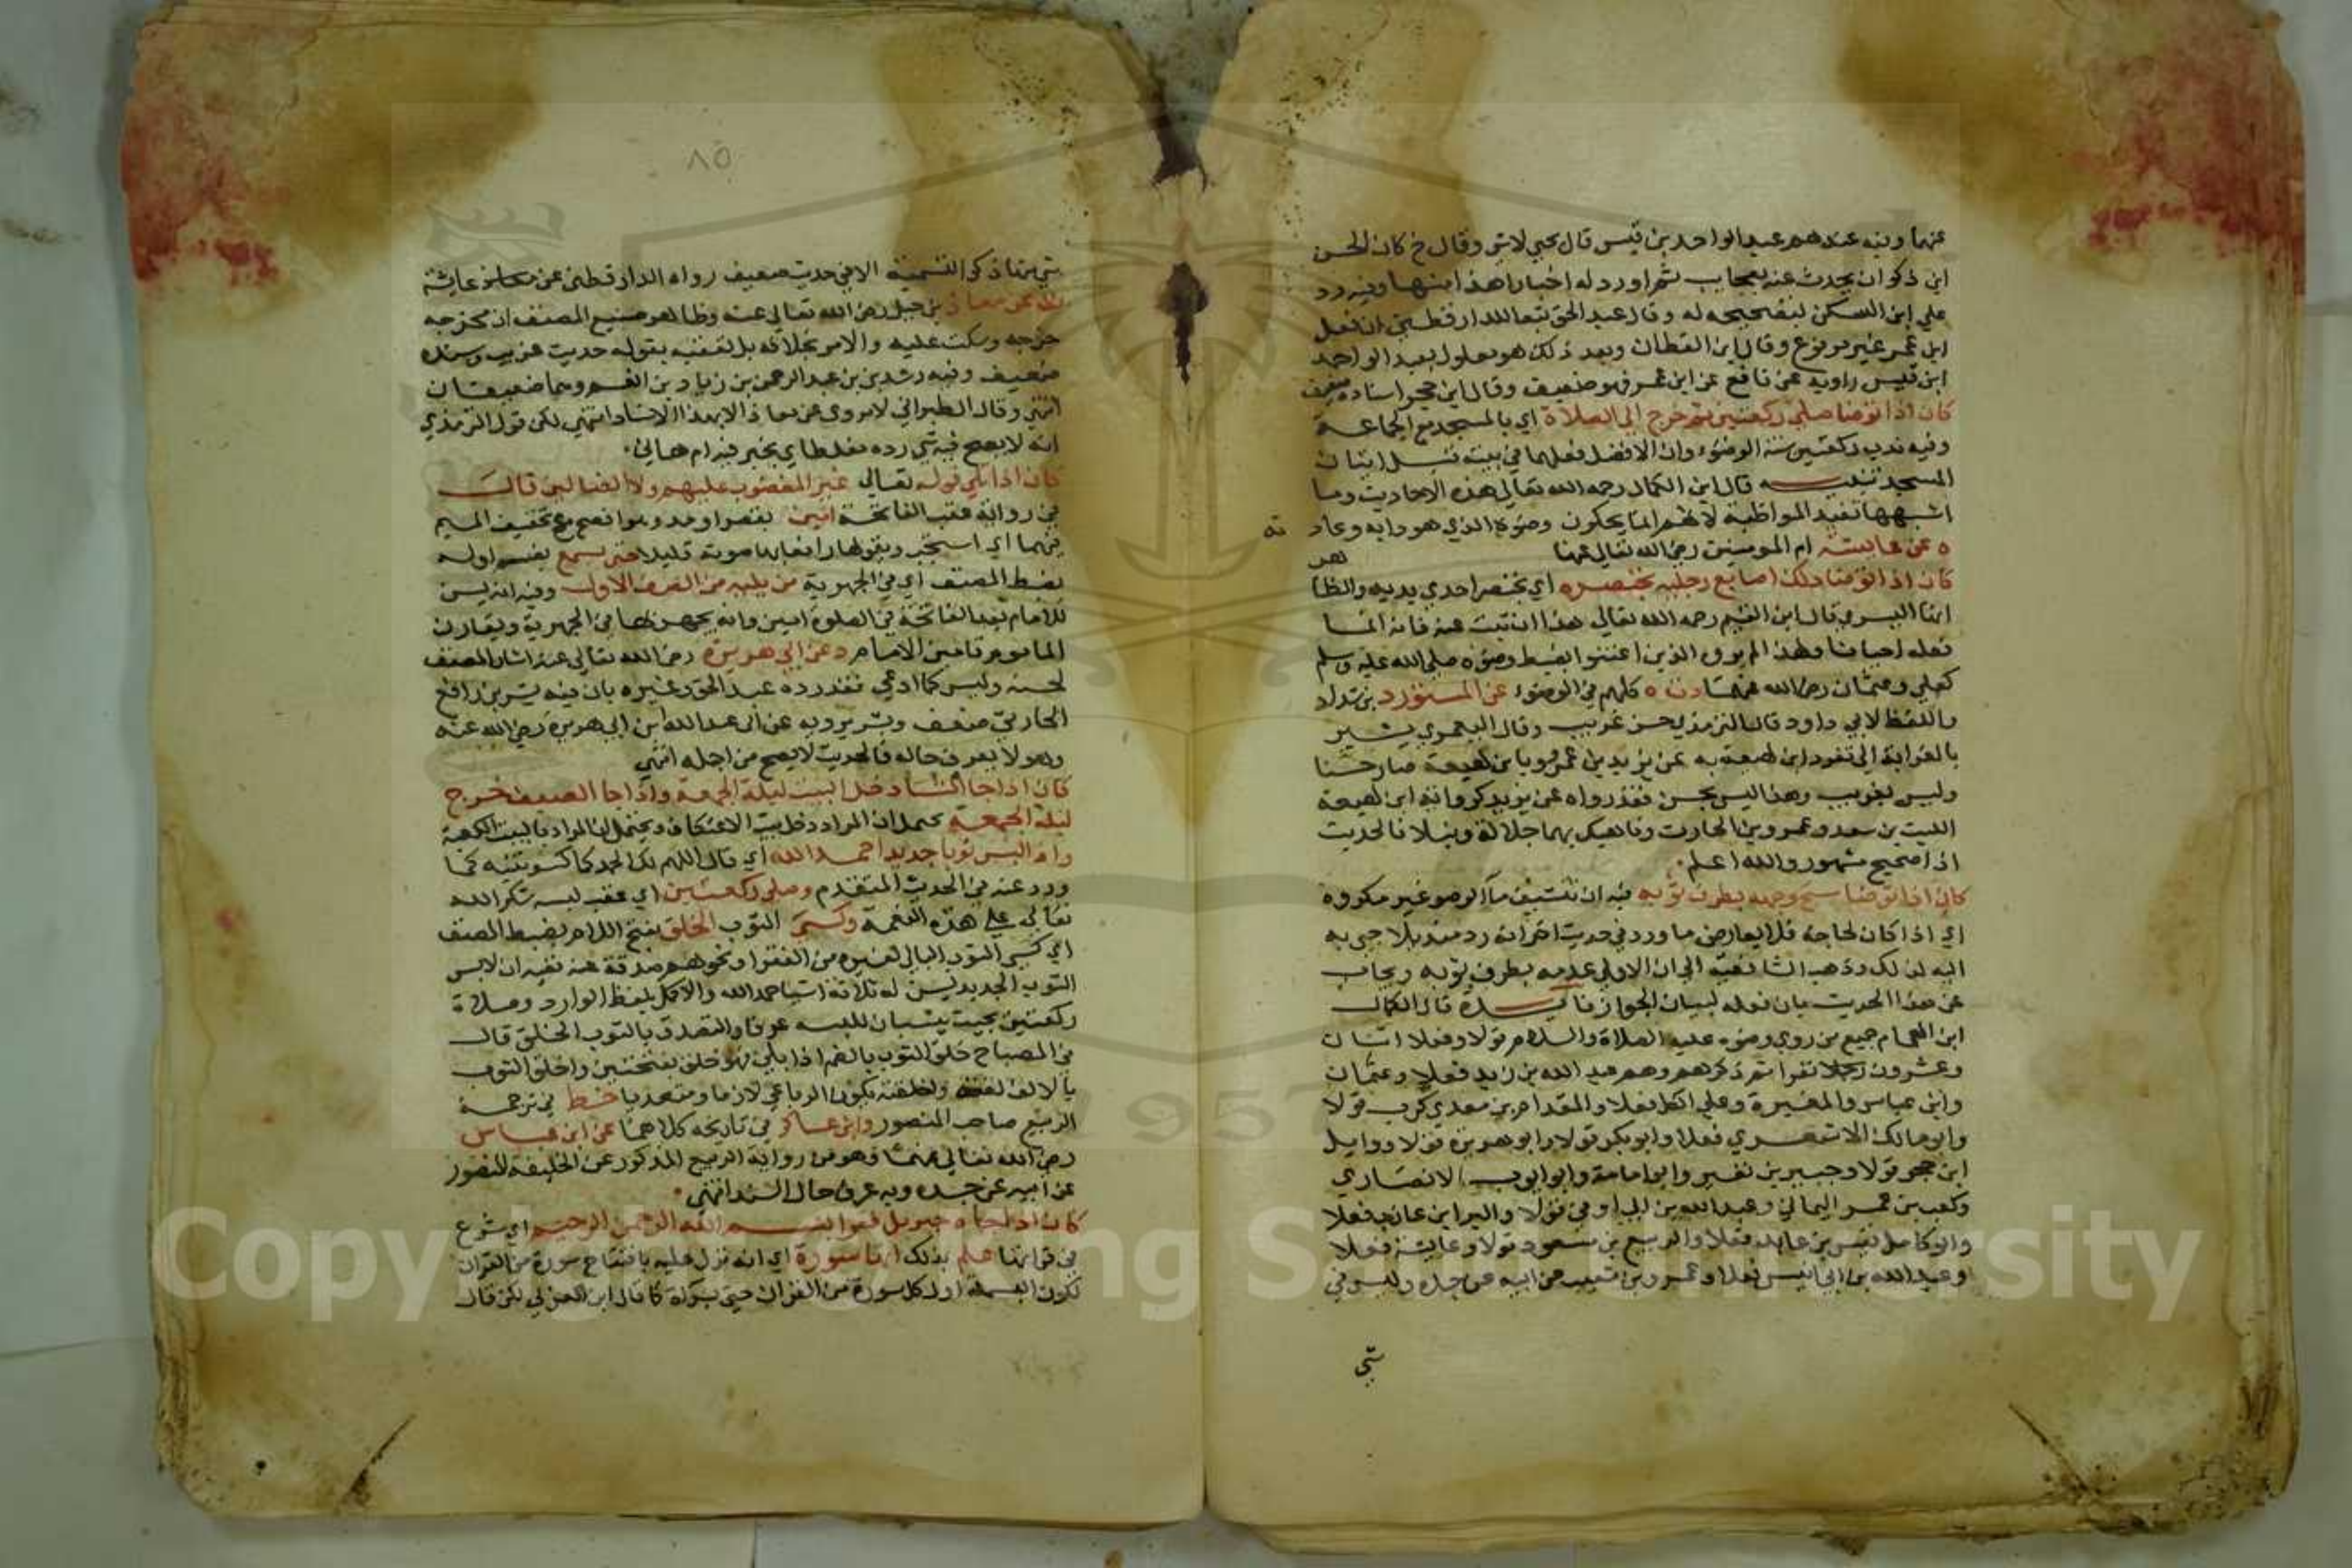 عنهما وفيه عندهم عبد الواحد بن قيس قال يحيى لاشي وقال خ كان الحسن
ابن ذكوان يحدث عنه بعجايب ثم اورد له اخبارا هذا منها وفيه رد
علي ابن السكن لتصحيحه له وقال عبد الحق تبعا للدارقطني ان فعل
ابن عمر غير مرفوع وقال ابن القطان وبعد ذلك هو معلول بعبد الواحد
ابن قيس راويه عن نافع عن ابن عمر فهو ضعيف وقال ابن حجر اسناده ضعيف
كان اذا توضا صلي ركعتين ثم خرج الي الصلاة اي بالمسجد مع الجماعة
وفيه ندب ركعتين سنة الوضوء وان الافضل فعلهما في بيته قبل اتيان
المسجد تنبيه قال ابن الكمال رحمه الله تعالي هذه الاحاديث وما
اشبهها تفيد المواظبة لانهم انما يحكون وضوءه الذي هو دابه وعاد ته
ه عن عايشة ام المومنين رضي الله تعالي عنها
كان اذا توضا دلك اصابع رجليه بخنصره اي بخنصر احدي يديه والظا هر
انها اليسري قال ابن القيم رحمه الله تعالي هذا ان ثبت عنه فانه انما
فعله احيانا ولهذا لم يروه الذين اعتنوا بضبط وضوءه صلي الله عليه وسلم
كعلي وعثمان رضي الله عنهما د ت ه كلهم في الوضوء عن المستورد بن شداد
واللفظ لابي داود قال الترمذي حسن غريب وقال اليعمري يشير
بالغرابة الي تفرد ابن لهيعة به عن يزيد بن عمرو وبابن لهيعة صار حسنا
وليس بغريب وهذا ليس بحسن فقد رواه عن يزيد كرواية ابن لهيعة
الليث بن سعد وعمرو بن الحارث وناهيك بهما جلالة ونبلا فالحديث
اذا صحيح مشهور والله اعلم
كان اذا توضا مسح وجهه بطرف ثوبه فيه ان تنشيف ماء الوضو غير مكروه
اي اذا كان لحاجة فلا يعارض ما ورد في حديث اخر انه رد منديلا جي به
اليه لذلك وذهب الشافعية الي ان الاولي عدمه بطرف ثوبه ويجاب
عن هذا الحديث بان فعله لبيان الجواز فايدة قال الكمال
ابن الهمام جميع من روي وضوءه عليه الصلاة والسلام قولا وفعلا اثنان
وعشرون رجلا نفرا ثم ذكرهم وهم عبد الله بن زيد فعلا وعثمان
وابن عباس والمغيرة وعلي الكل فعلا والمقدام بن معدي كرب قولا
وابو مالك الاشعري فعلا وابو بكر قولا وابو هريرة قولا ووايل
ابن حجر قولا وجبير بن نفير وابو امامة وابو ايوب الانصاري
وكعب بن عمر اليماني وعبد الله بن ابي اوفي قولا والبرا بن عازب فعلا
وابو كاهل قيس بن عايد فعلا والربيع بن مسعود قولا وعايشة فعلا
وعبد الله بن ابي انيس فعلا وعمرو بن شعيب عن ابيه عن جده وليس في
شي
٨٥
شي منها ذكر التسمية الا في حديث ضعيف رواه الدارقطني عن عايشة
ت عن معاذ بن جبل رضي الله تعالي عنه وظاهر صنيع المصنف ان مخرجه
خرجه وسكت عليه والامر بخلافه بل تعقبه بقوله حديث غريب وسنده
ضعيف وفيه رشدين بن عبد الرحمن بن زياد بن انعم وهما ضعيفان
انتهي وقال الطبراني لا يروي عن معاذ الا بهذا الاسناد انتهي لكن قول الترمذي
انه لا يصح فيه شي رده مغلطاي بخبر فيه ام هاني
كان اذا تلي قوله تعالي غير المغضوب عليهم ولا الضالين قال
في رواية عقب الفاتحة امين بقصر او مد وهو افصح مع تخفيف الميم
فيهما اي استجب ويقولها رافعا بها صوته قليلا حتي يسمع بضم اوله
بضبط المصنف اي في الجهرية من يليه من الصف الاول وفيه انه يسن
للامام بعد الفاتحة في الصلوة امين وانه يجهر بها في الجهرية ويقارن
الماموم تامين الامام د عن ابي هريرة رضي الله تعالي عنه اشار المصنف
لحسنه وليس كما ادعي فقد رده عبد الحق وغيره بان فيه بشر بن رافع
الحارثي ضعيف وبشر يرويه عن ابي عبد الله ابن ابي هريرة رضي الله عنه
وهو لا يعرف حاله فالحديث لا يصح من اجله انتهي
كان اذا جا الشتا دخل البيت ليلة الجمعة واذا جا الصيف خرج
ليلة الجمعة يحتمل ان المراد دخل بيت الاعتكاف ويحتمل ان المراد بالبيت الكعبة
واذا لبس ثوبا جديدا حمد الله اي قال اللهم لك الحمد كما كسوتنيه كما
ورد عنه في الحديث المتقدم وصلي ركعتين اي عقب لبسه شكر الله
تعالي علي هذه النعمة وكسي الثوب الخلق بفتح اللام بضبط المصنف
اي كسي الثوب البالي لغيره من الفقرا ونحوهم صدقة عنه ففيه ان لابس
الثوب الجديد يسن له ثلاثة اشيا حمد الله والاكمل بلفظ الوارد وصلاة
ركعتين بحيث ينسبان للبسه عرفا والتصدق بالثوب الخلق قال
في المصباح خلق الثوب بالضم اذا بلي فهو خلق بفتحتين واخلق الثوب
بالالف لغة واخلقته يكون الرباعي لازما ومتعديا خط في ترجمة
الربيع صاحب المنصور وابن عساكر في تاريخه كلاهما عن ابن عباس
رضي الله تعالي عنهما وهو من رواية الربيع المذكور عن الخليفة المنصور
عن ابيه عن جده وبه عرف حال السند انتهي
كان اذا جاه جبريل فقرا بسم الله الرحمن الرحيم اي شرع
في قرائتها علم بذلك انها سورة اي انه نزل عليه بافتتاح سورة من القران
لكون البسملة اول كل سورة من القران حتي براة كما قال ابن العربي لكن قال
Copyright © King Saud University
1957